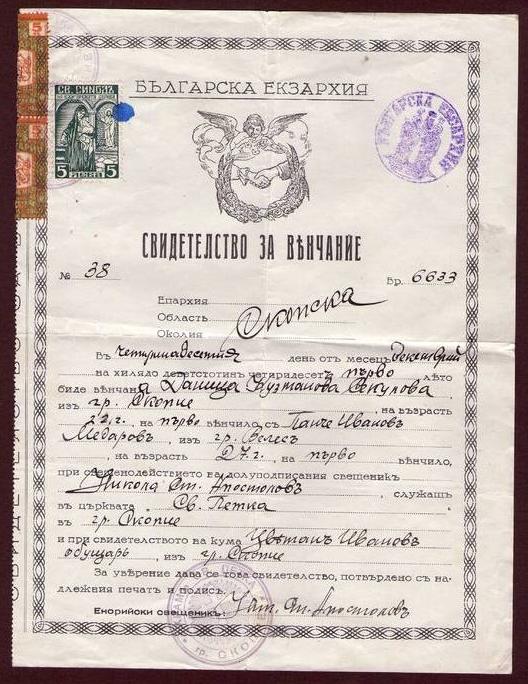 5
5
СВ. СИНОДЪ
5 ЛЕВА 5
БЪЛГАРСКА ЕКЗАРХИЯ
БЪЛГАРСКА ЕКЗАРХИЯ
СВИДЕТЕЛСТВО ЗА ВѢНЧАНИЕ
№ 38 Бр. 6633
Епархия
Область Скопска
Околия
Въ четиринадесетия день отъ месецъ декемврий
на хилядо деветстотинъ четиридесеть първо лѣто
биде вѣнчана Даница Кузманова Секулова
изъ гр. Скопие на възрасть
22 г. на първо вѣнчило съ Панче Ивановъ
Медаровъ, изъ гр. Велесъ
, на възрасть 27 г. на първо вѣнчило,
при свещенодействието на долуподписания свещеникъ
Никола Ст. Апостоловъ, служащъ
въ църквата Св. Петка
въ гр. Скопие
и при свидетелството на кума Цвѣтанъ Ивановъ
обущарь изъ гр. Скопие
За уверение дава се това свидетелство, потвърдено съ на-
длежния печатъ и подпись.
Енорийски свещеникъ: Ст. Апостоловъ